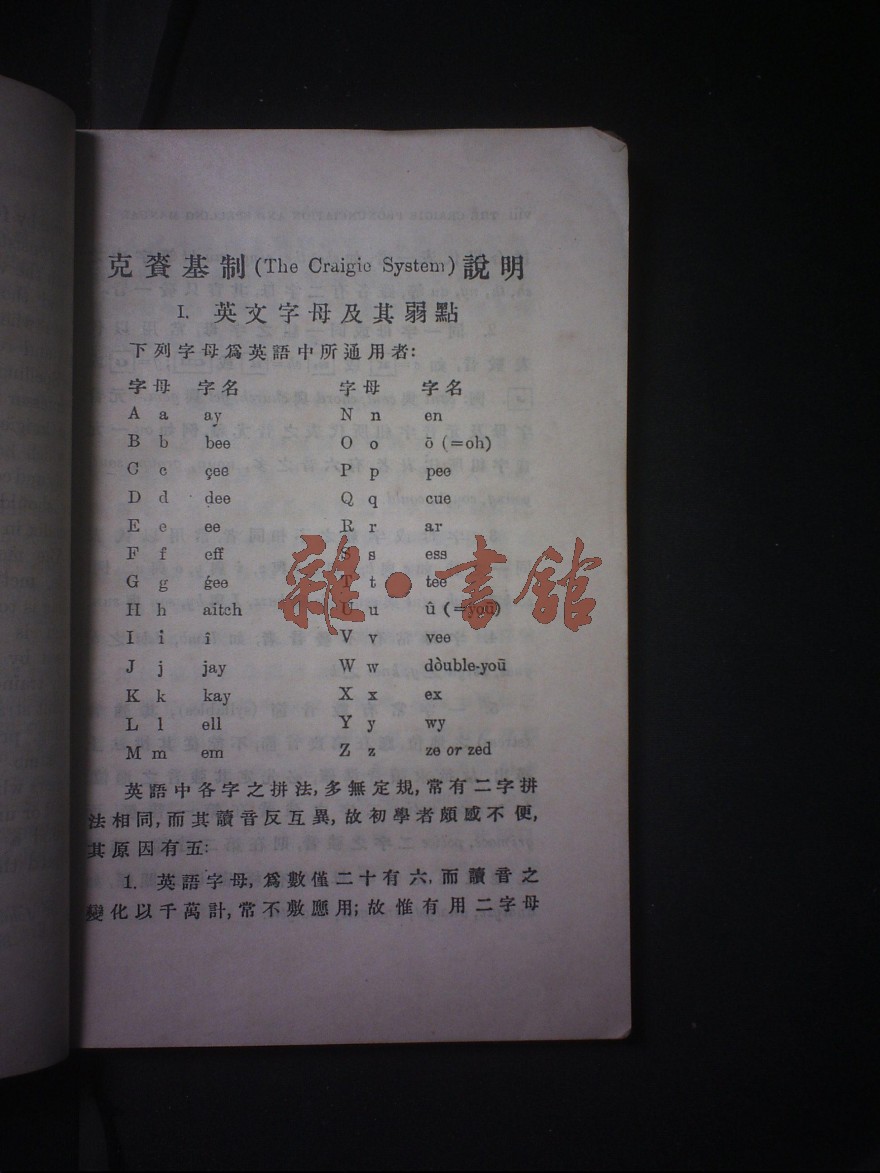 克賚基制(The Craigie System)說明
I. 英文字母及其弱點
下列字母爲英語中所通用者:
字母 字名 字母 字名
A a ay N n en
B b bee O o ō (=oh)
C c çee P p pee
D d dee Q q cue
E e ee R r ar
F f eff S s ess
G g ǵee T t tee
H h aitch U u û (=yoū)
I i î V v vee
J j jay W w dòuble-yoū
K k kay X x ex
L l ell Y y wy
M m em Z z ze or zed
英語中各字之拼法,多無定規,常有二字拼
法相同,而其讀音反互異,故初學者頗感不便,
其原因有五:
1. 英語字母,爲數僅二十有六,而讀音之
變化以千萬計,常不敷應用;故惟有用二字母
雜·書館